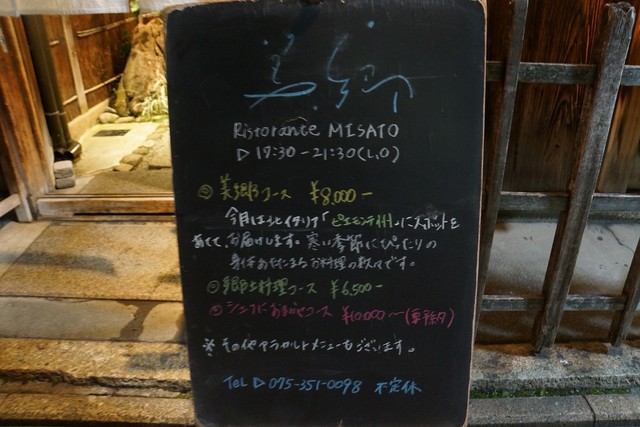 美郷
Ristorante MISATO
▷ 17:30-21:30(L.O)
◎ 美郷コース ¥8,000-
今月は北イタリア「ピエモンテ州」にスポットを
あてて、お届けします。寒い季節にぴったりの
身体あたたまるお料理の数々です。
◎ 郷土料理コース ¥6,500-
◎ シェフにおまかせコース ¥10,000〜(要予約)
※ その他アラカルトメニューもございます。
Tel ▷ 075-351-0098 不定休